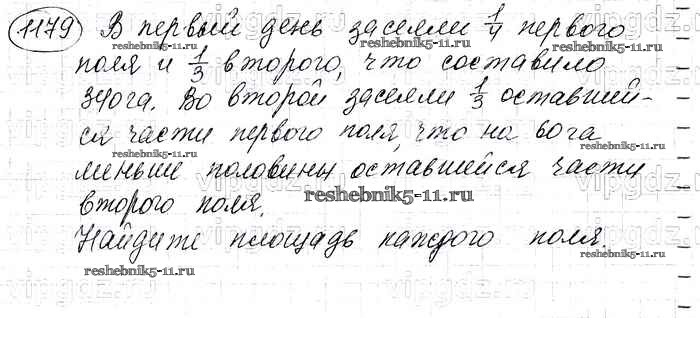 1179 В первый день засеяли 1/4 первого
поля и 1/3 второго, что составило
340га. Во второй засеяли 1/3 оставшей-
ся части первого поля, что на 60га
меньше половины оставшейся части
второго поля.
Найдите площадь каждого поля.
reshebnik5-11.ru
reshebnik5-11.ru
reshebnik5-11.ru
reshebnik5-11.ru
reshebnik5-11.ru
reshebnik5-11.ru
reshebnik5-11.ru